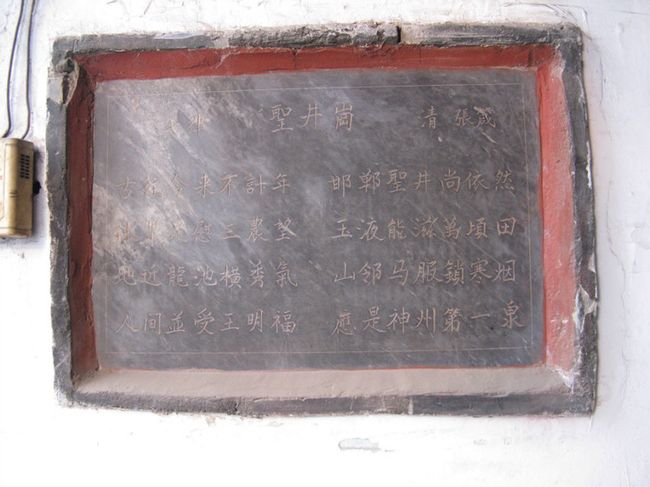 七律 聖井崗 清 張成
古往今来不計年 邯鄲聖井尚依然
慰三農望 玉液能滋萬頃田
地近龍池横秀氣 山邻马服鎖寒烟
人间並受王明福 應是神州第一泉